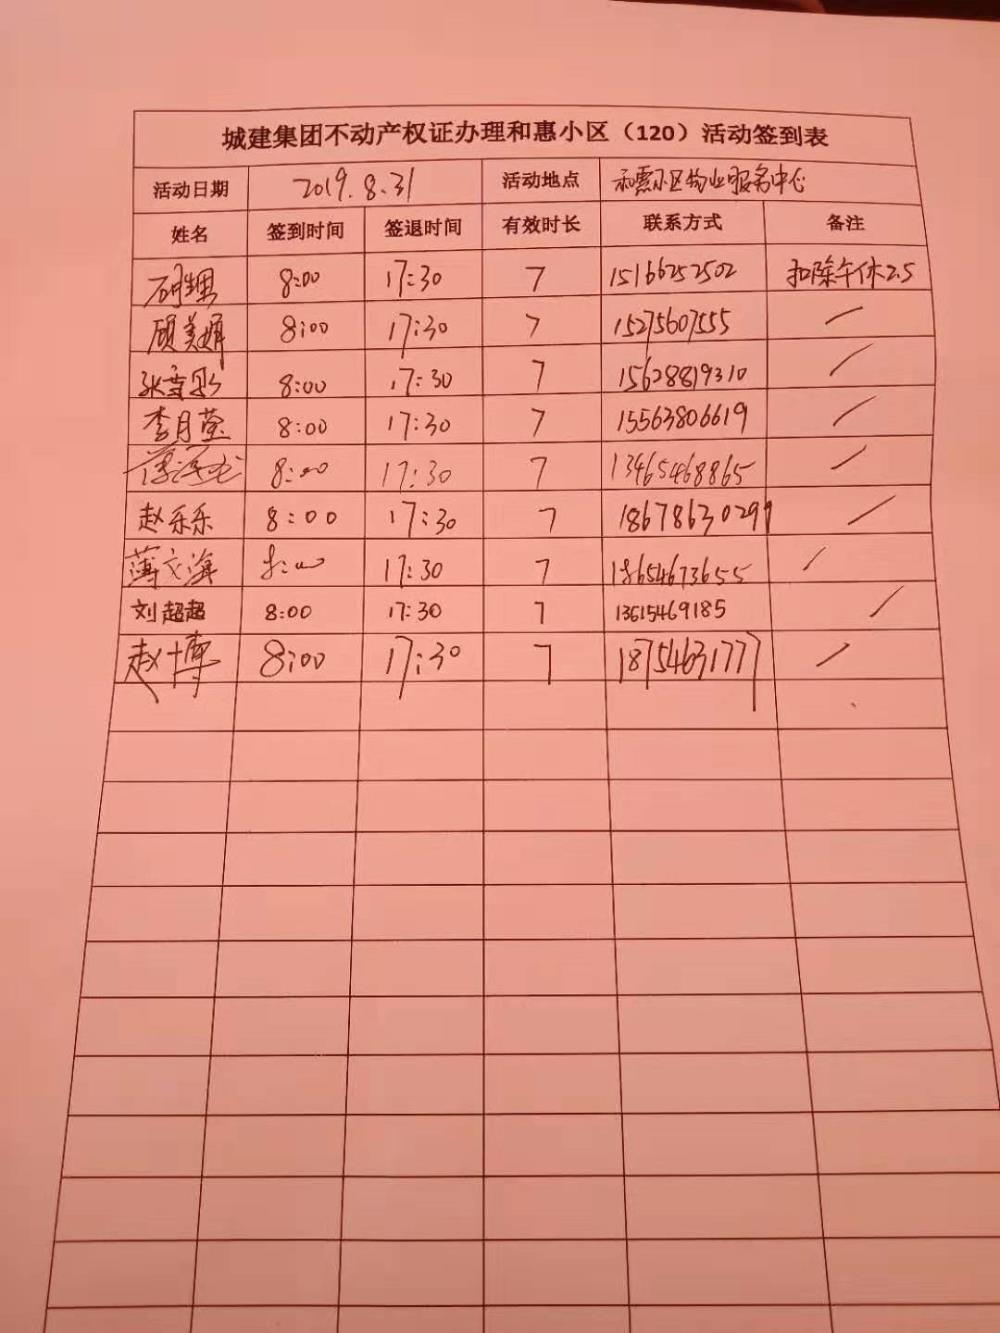 城建集团不动产权证办理和惠小区（120）活动签到表
活动日期 2019.8.31 活动地点 和惠小区物业服务中心
姓名 签到时间 签退时间 有效时长 联系方式 备注
8:00 17:30 7 15166252502 扣除午休2.5
顾美娟 8:00 17:30 7 15275607555 /
张雪 8:00 17:30 7 15628819310 /
李月莹 8:00 17:30 7 15563806619 /
8:00 17:30 7 13465468865 /
赵乐乐 8:00 17:30 7 18678630299 /
薄文海 8:00 17:30 7 18654673655 /
刘超超 8:00 17:30 7 13615469185 /
赵博 8:00 17:30 7 18754631777 /